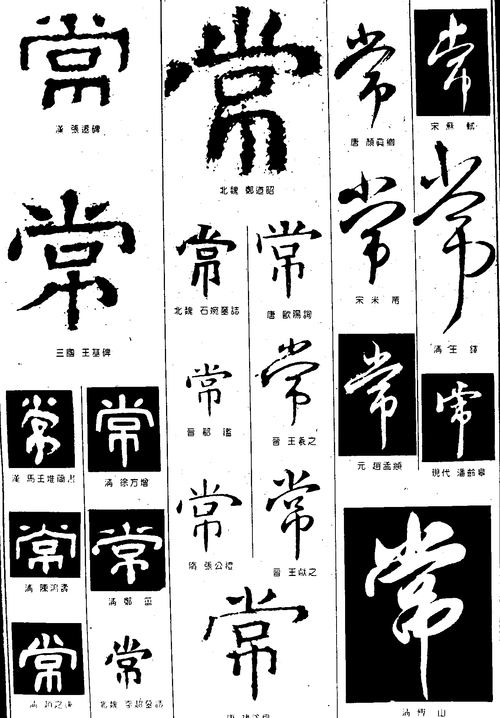 常
漢 張遷碑
常
三國 王基碑
常
漢 馬王堆簡書
常
清 徐方增
常
清 陳鴻壽
常
清 鄭簠
常
清 趙之謙
常
北魏 李超墓誌
常
北魏 鄭道昭
常
北魏 石婉墓誌
常
唐 歐陽詢
常
晉 郗鑑
常
晉 王羲之
常
隋 張公禮
常
晉 王獻之
常
常
唐 顏真卿
常
宋 蘇軾
常
宋 米芾
常
清 王鐸
常
元 趙孟頫
常
現代 潘齡皋
常
清 傅山